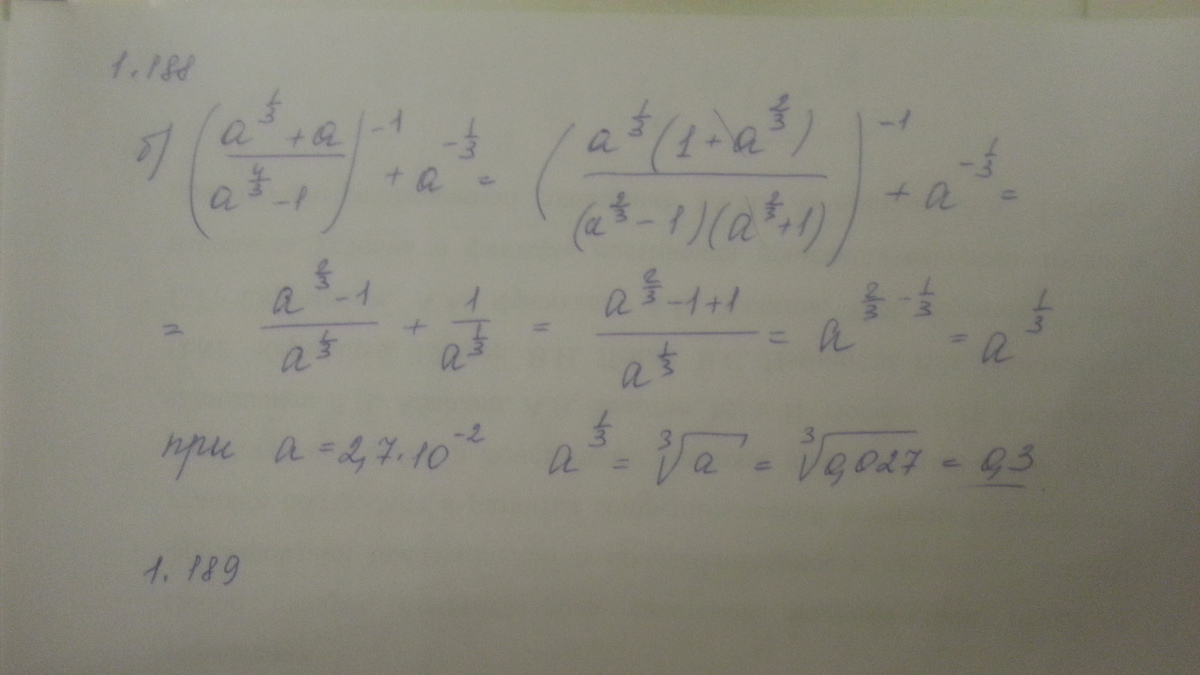 1.188
б) ((a^(1/3) + a)/(a^(4/3) - 1))^(-1) + a^(-1/3) = ((a^(1/3)(1 + a^(2/3)))/((a^(2/3) - 1)(a^(2/3) + 1)))^(-1) + a^(-1/3) =
= (a^(2/3) - 1)/(a^(1/3)) + 1/(a^(1/3)) = (a^(2/3) - 1 + 1)/(a^(1/3)) = a^(2/3 - 1/3) = a^(1/3)
при a = 2,7·10^(-2) a^(1/3) = ∛a = ∛0,027 = 0,3
1.189